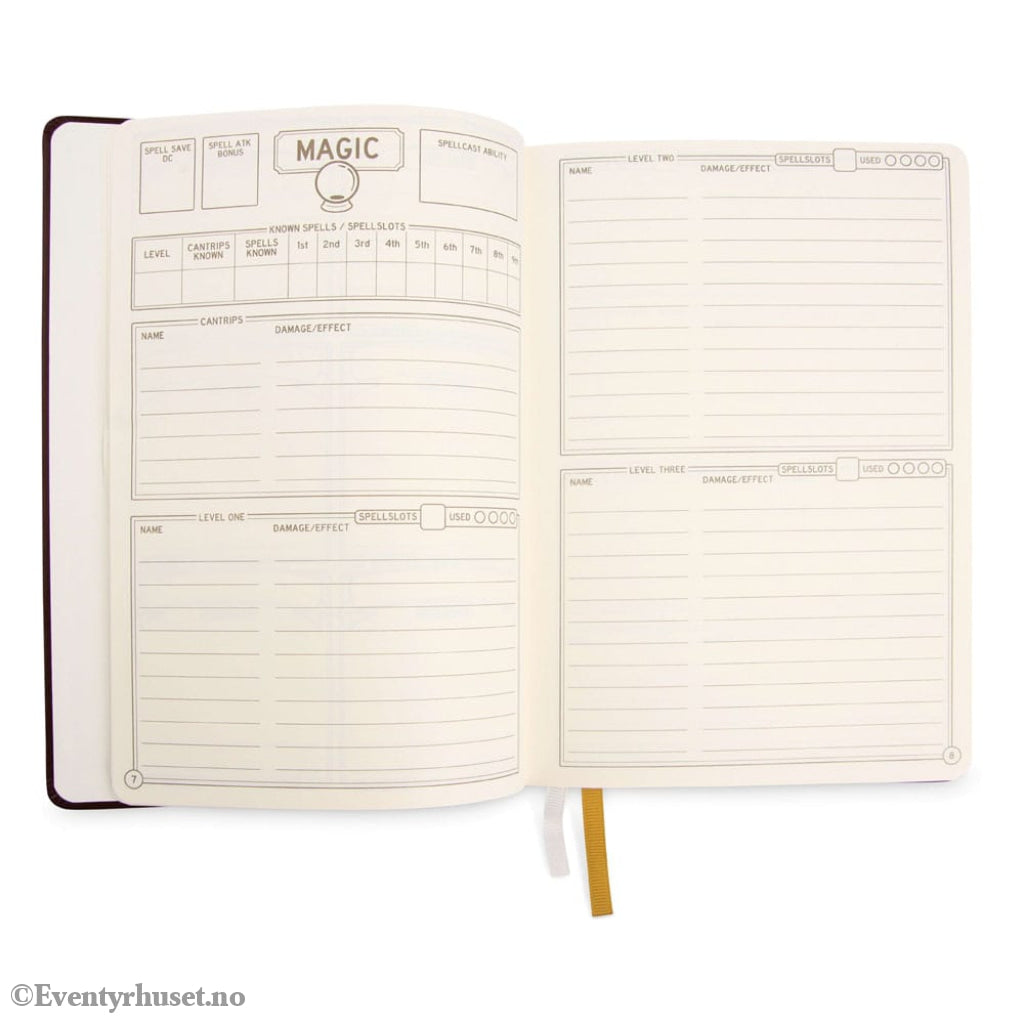 SPELL SAVE
DC
SPELL ATK
BONUS
MAGIC
SPELLCAST ABILITY
KNOWN SPELLS / SPELLSLOTS
LEVEL CANTRIPS KNOWN SPELLS KNOWN 1st 2nd 3rd 4th 5th 6th 7th 8th 9th
CANTRIPS
NAME DAMAGE/EFFECT
LEVEL ONE SPELLSLOTS USED
NAME DAMAGE/EFFECT
7
LEVEL TWO SPELLSLOTS USED
NAME DAMAGE/EFFECT
LEVEL THREE SPELLSLOTS USED
NAME DAMAGE/EFFECT
8
©Eventyrhuset.no